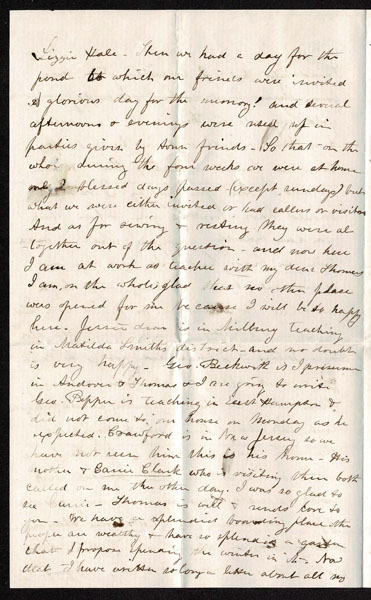 Lizzie Hale - Then we had a day for the
pond to which our friends were invited
A glorious day for the memory! and several
afternoons & evenings were used up in
parties given by Town friends - So that on the
whole during the four weeks we were at home
only 2 blessed days passed (except sundays) but
what we were either invited or had callers or visitors
And as for sewing & resting they were al
together out of the question - and now here
I am at work as teacher with my dear Thomas
I am on the whole glad that no other place
was opened for me because I will be so happy
here. Jennie dear is in Millbury teaching
in Matilda Smiths district - and no doubt
is very happy - Geo. Beckwith is I presume
in Andover & Thomas & I are going to write
Geo. Pepper is teaching in East Hampton &
did not come to our house on Monday as he
expected. Crawford is in New Jersey so we
have not seen him this is his home - His
mother & Carrie Clark who is visiting them both
called on me the other day. I was so glad to
see Carrie - Thomas is well & sends love to
you - We have a splendid boarding place the
people are wealthy & have so splendid a garden
that I propose spending the winter in it - Now
that I have written so long a letter about all my